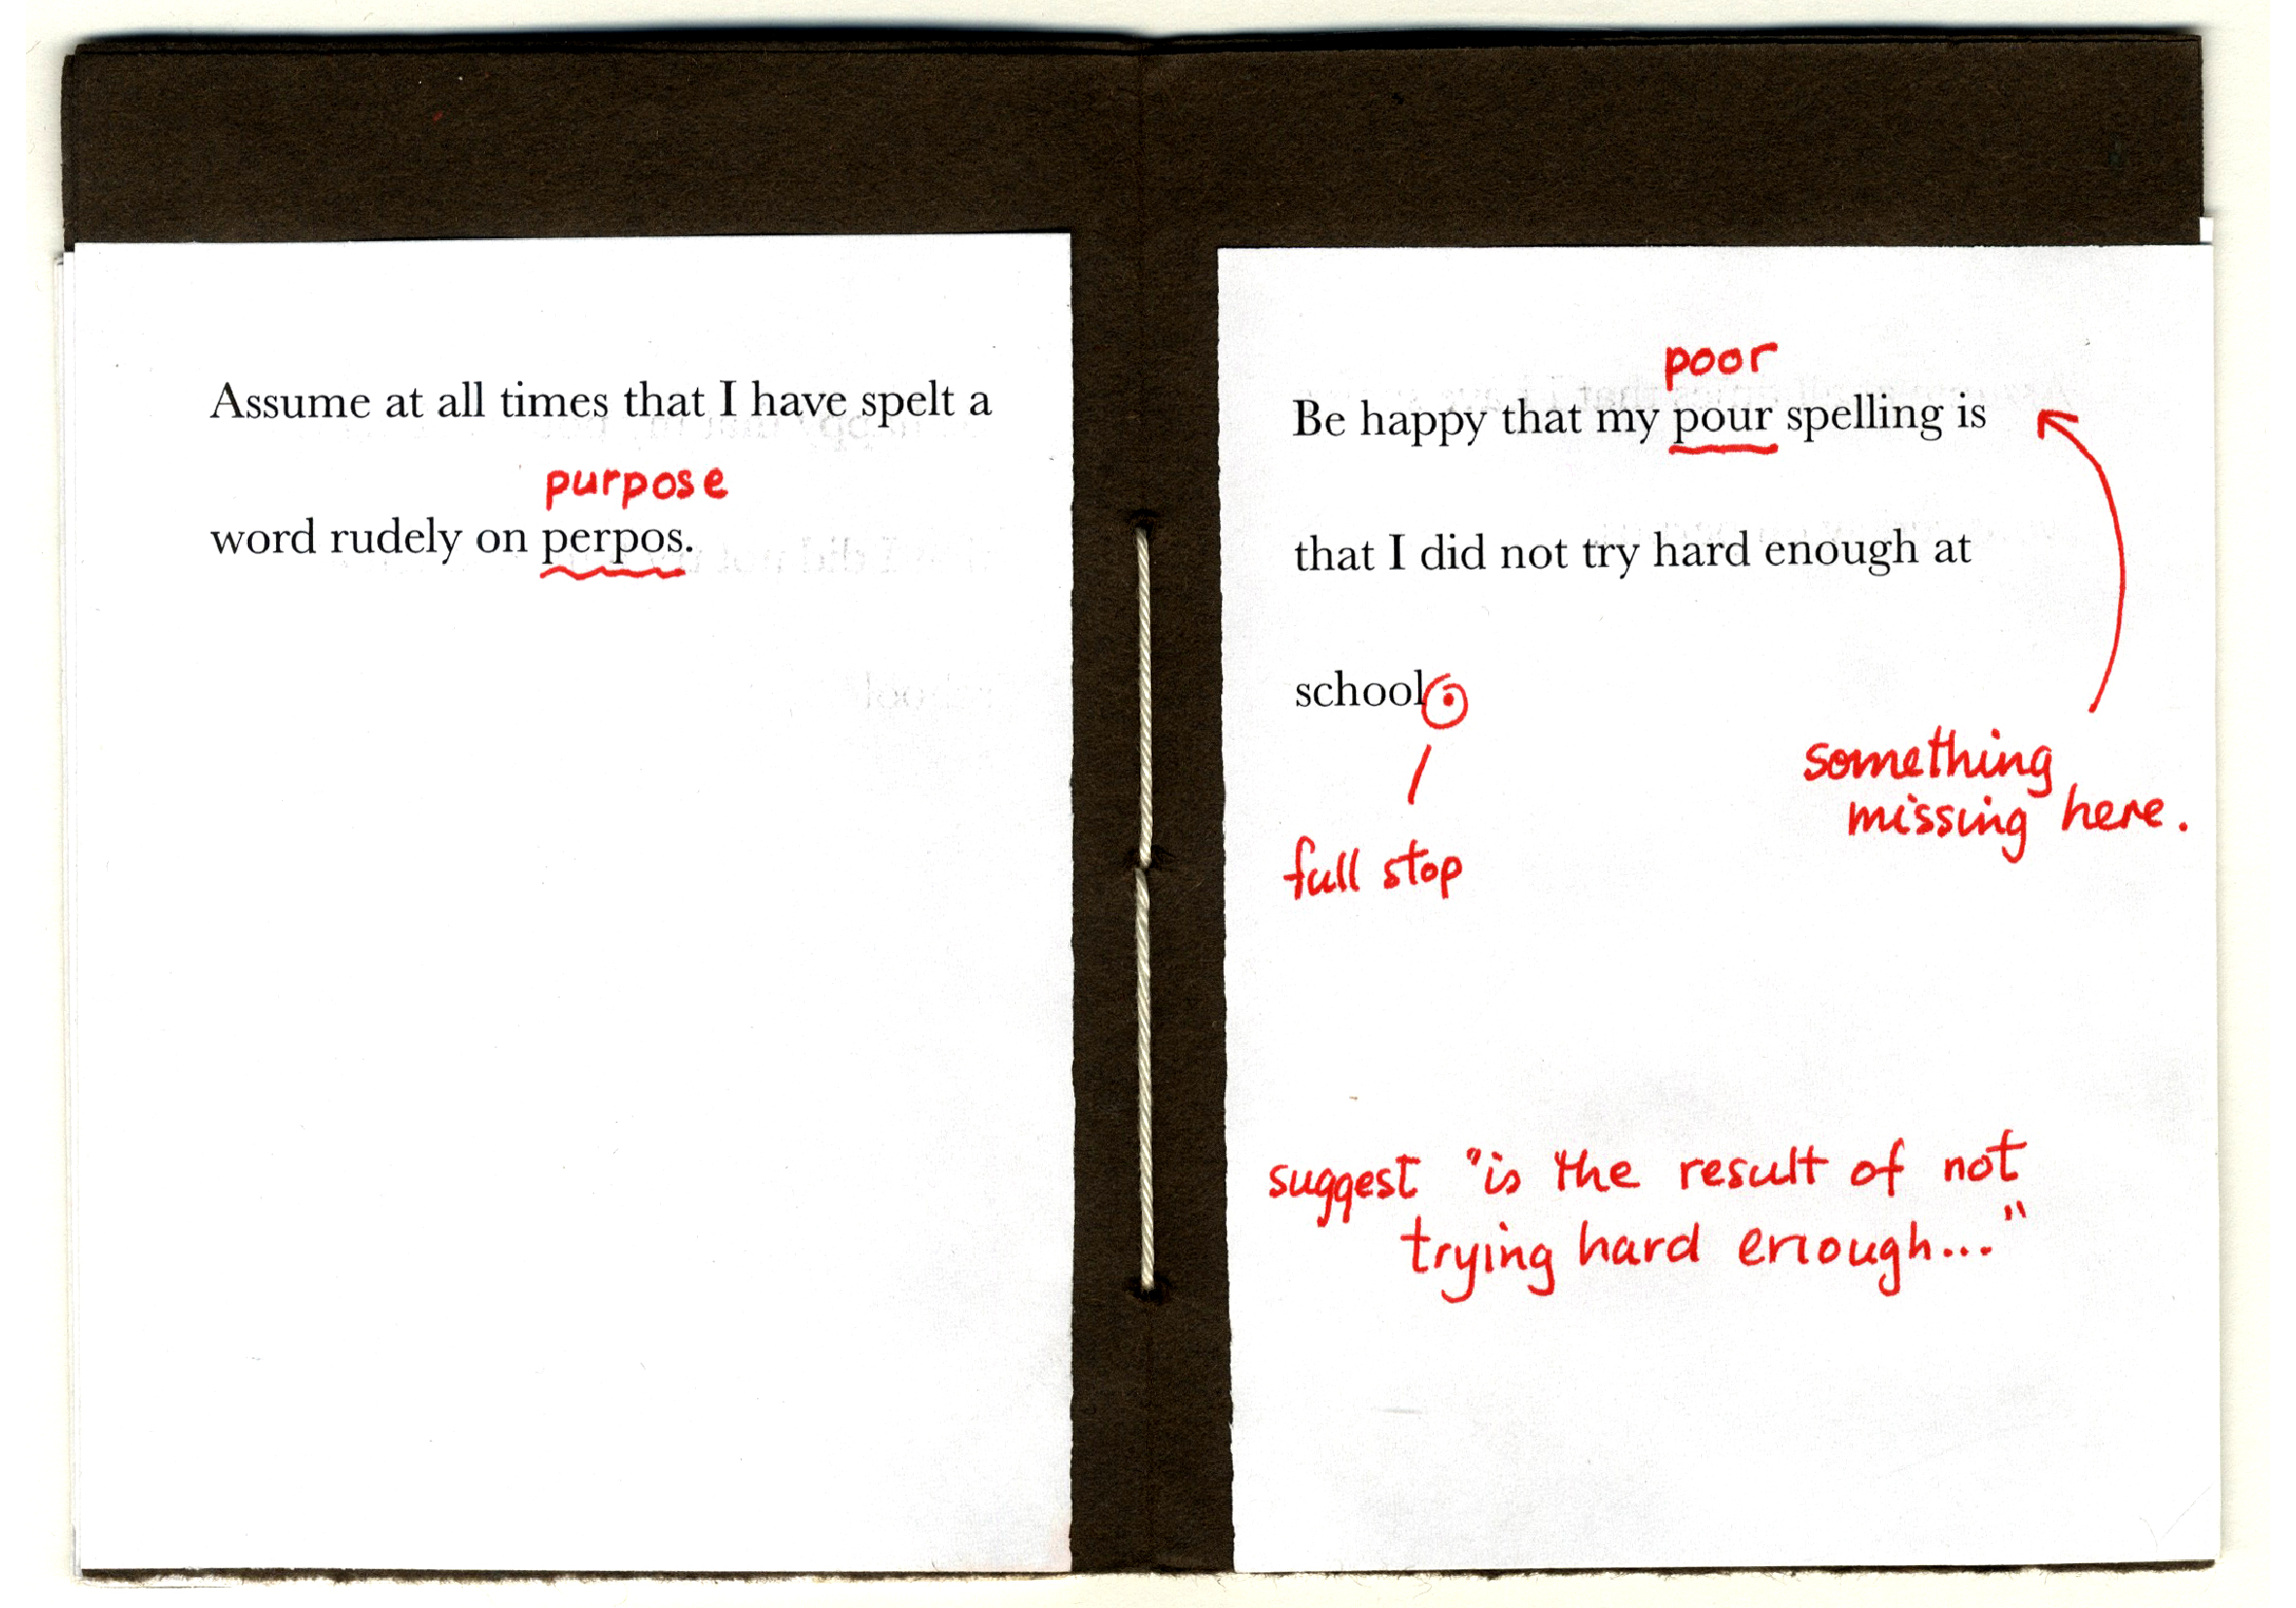 Assume at all times that I have spelt a
purpose
word rudely on perpos.
poor
Be happy that my pour spelling is
that I did not try hard enough at
school.
something
missing here.
full stop
suggest "is the result of not
trying hard enough..."